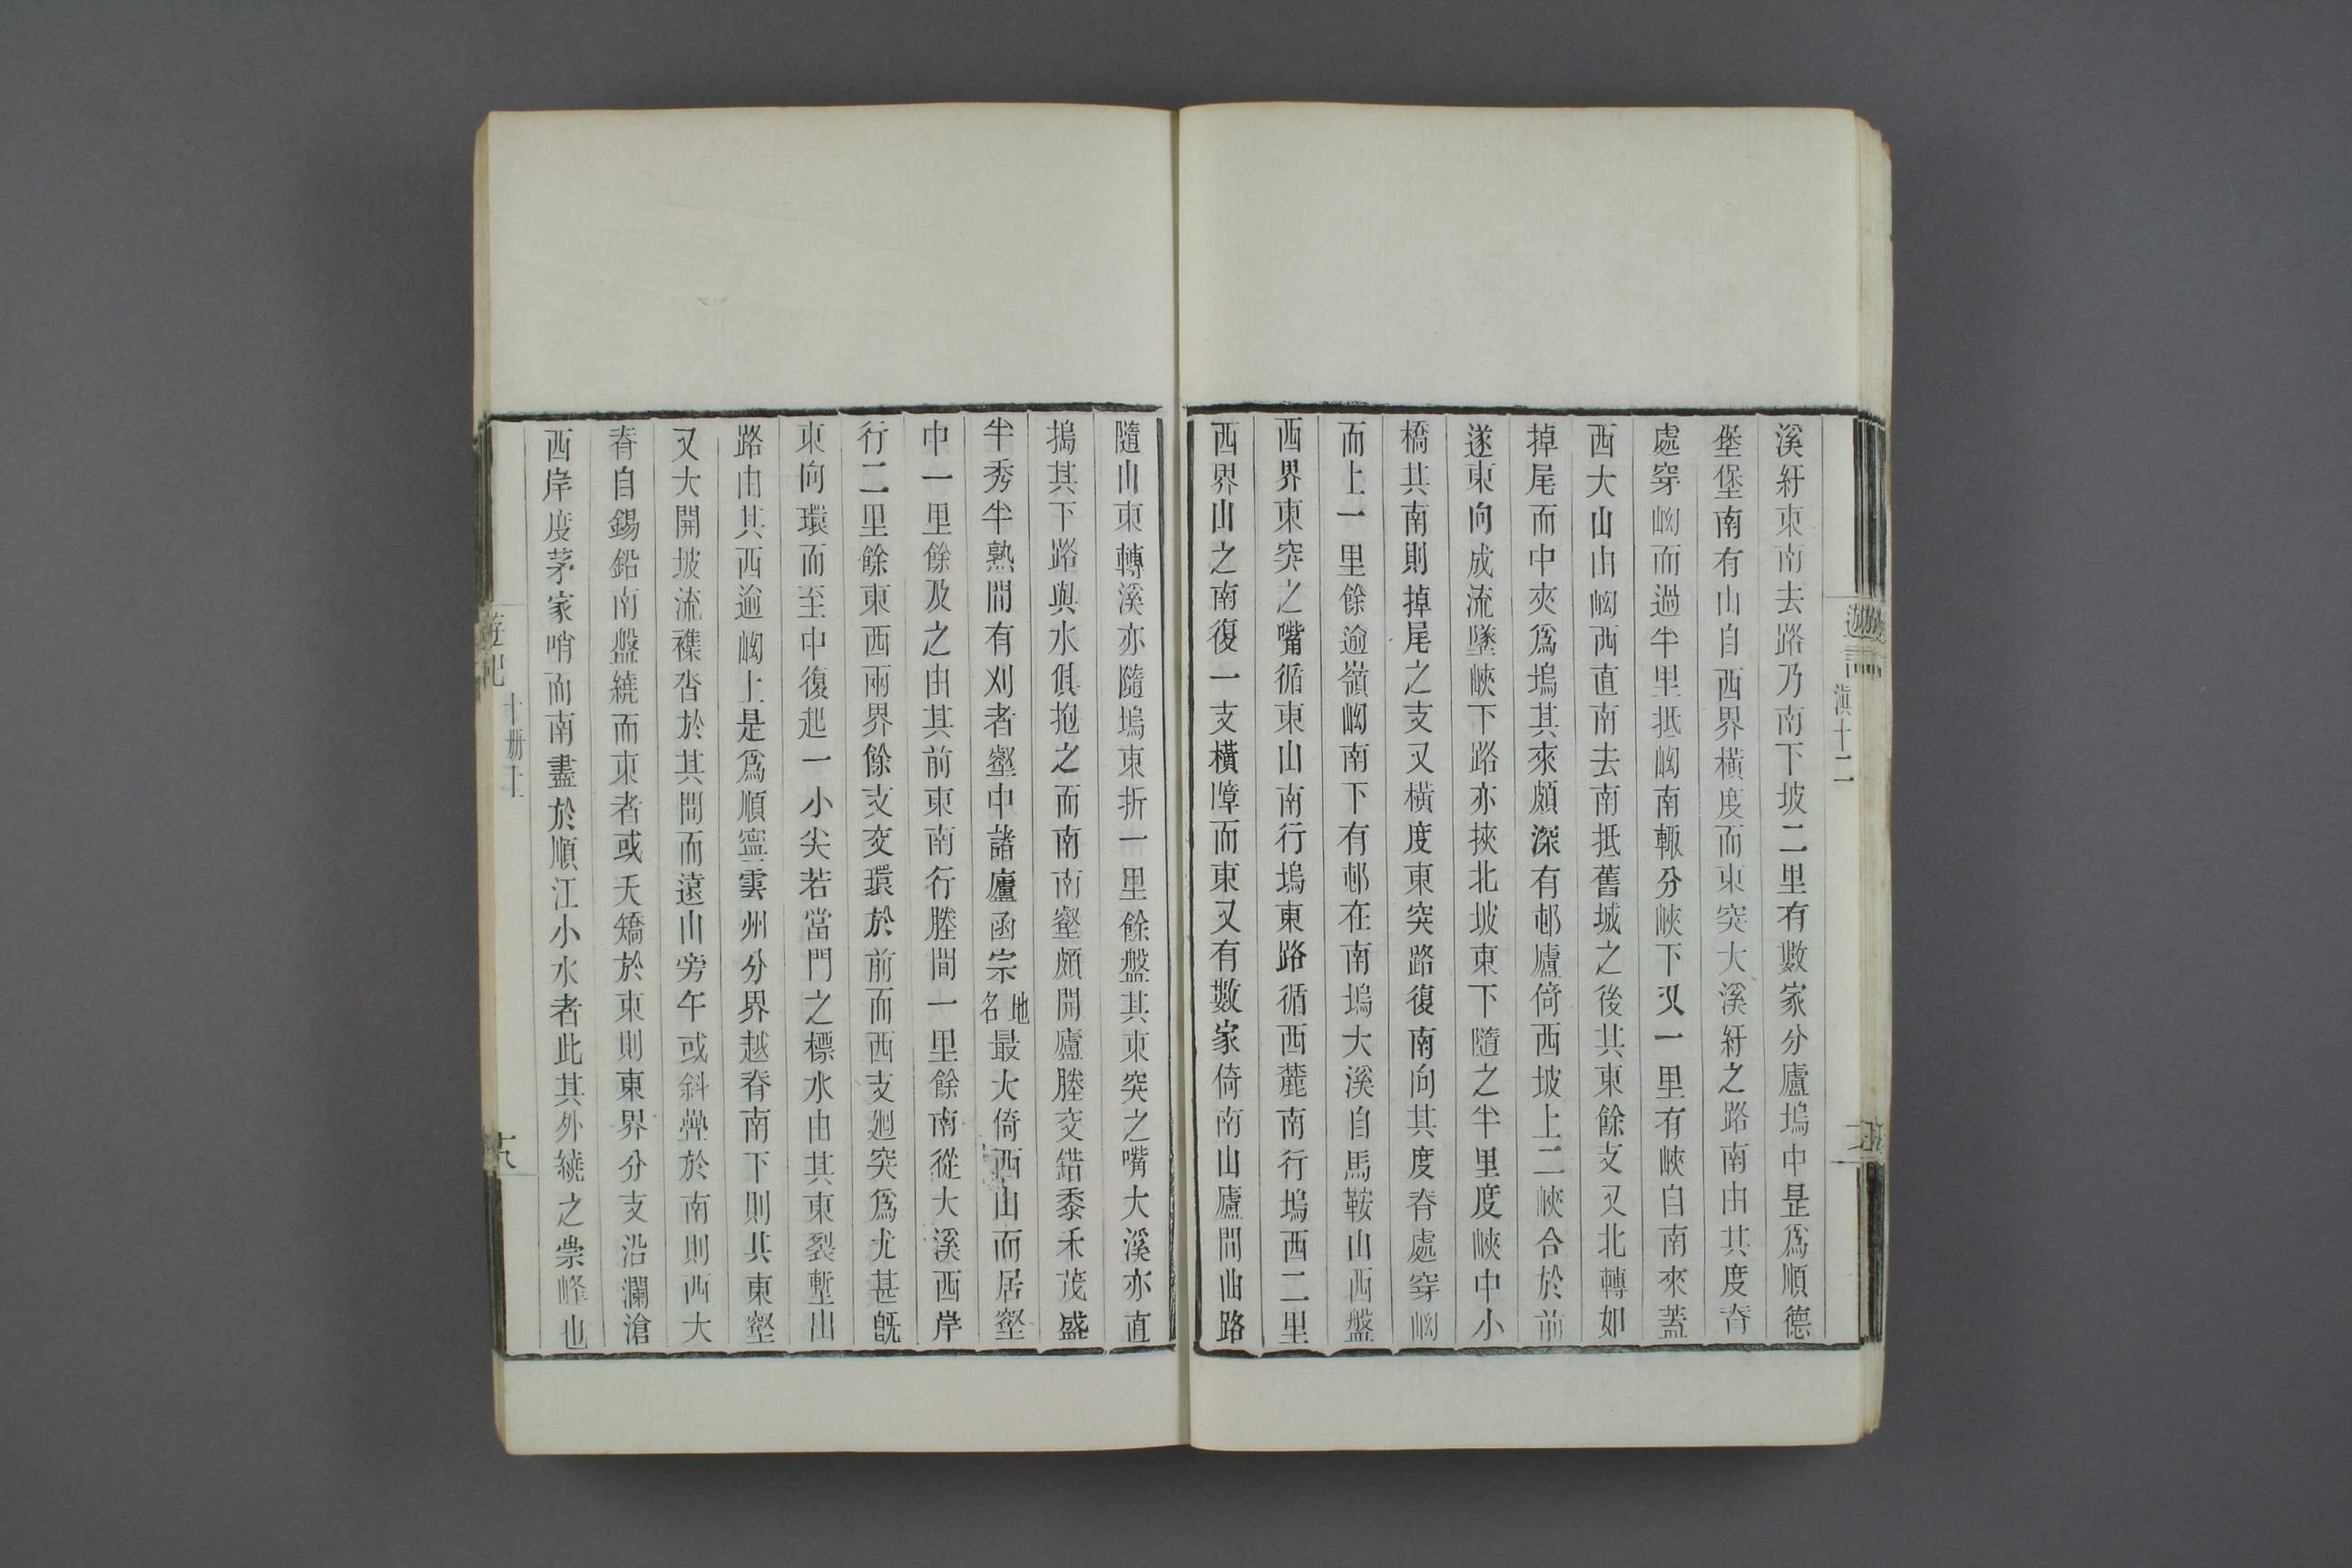 溪紆東南去路乃南下坡二里有數家分廬塢中是為順德
堡堡南有山自西界橫度而東突大溪紆之路南由其度脊
處穿峽而過半里抵峽南輒分峽下又一里有峽自南來蓋
西大山由峽西直南去南抵舊城之後其東餘支又北轉如
掉尾而中夾為塢其來頗深有邨廬倚西坡上二峽合於前
遂東向成流墜峽下路亦挾北坡東下隨之半里度峽中小
橋其南則掉尾之支又橫度東突路復南向其度脊處穿㘭
而上一里餘逾嶺㘭南下有邨在南塢大溪自馬鞍山西盤
西界東突之嘴循東山南行塢東路循西麓南行塢西二里
西界山之南復一支橫障而東又有數家倚南山廬間曲路
隨山東轉溪亦隨塢東折一里餘盤其東突之嘴大溪亦直
搗其下路與水俱抱之而南南壑頗開廬塍交錯黍禾茂盛
半秀半熟間有刈者壑中諸廬函宗地名最大倚西山而居壑
中一里餘及之由其前東南行塍間一里餘南從大溪西岸
行二里餘東西兩界餘支交環於前而西支迴突為尤甚既
東向環而至中復起一小尖若當門之標水由其東裂塹出
路由其西逾㘭上是為順寧雲州分界越脊南下則其東壑
又大開坡流襍沓於其間而遠山旁午或斜疊於南則西大
脊自錫鉛南盤繞而東者或夭矯於東則東界分支沿瀾滄
西岸度茅家哨而南盡於順江小水者此其外繞之崇峰也
遊記
滇十二
遊記
十冊上
十八